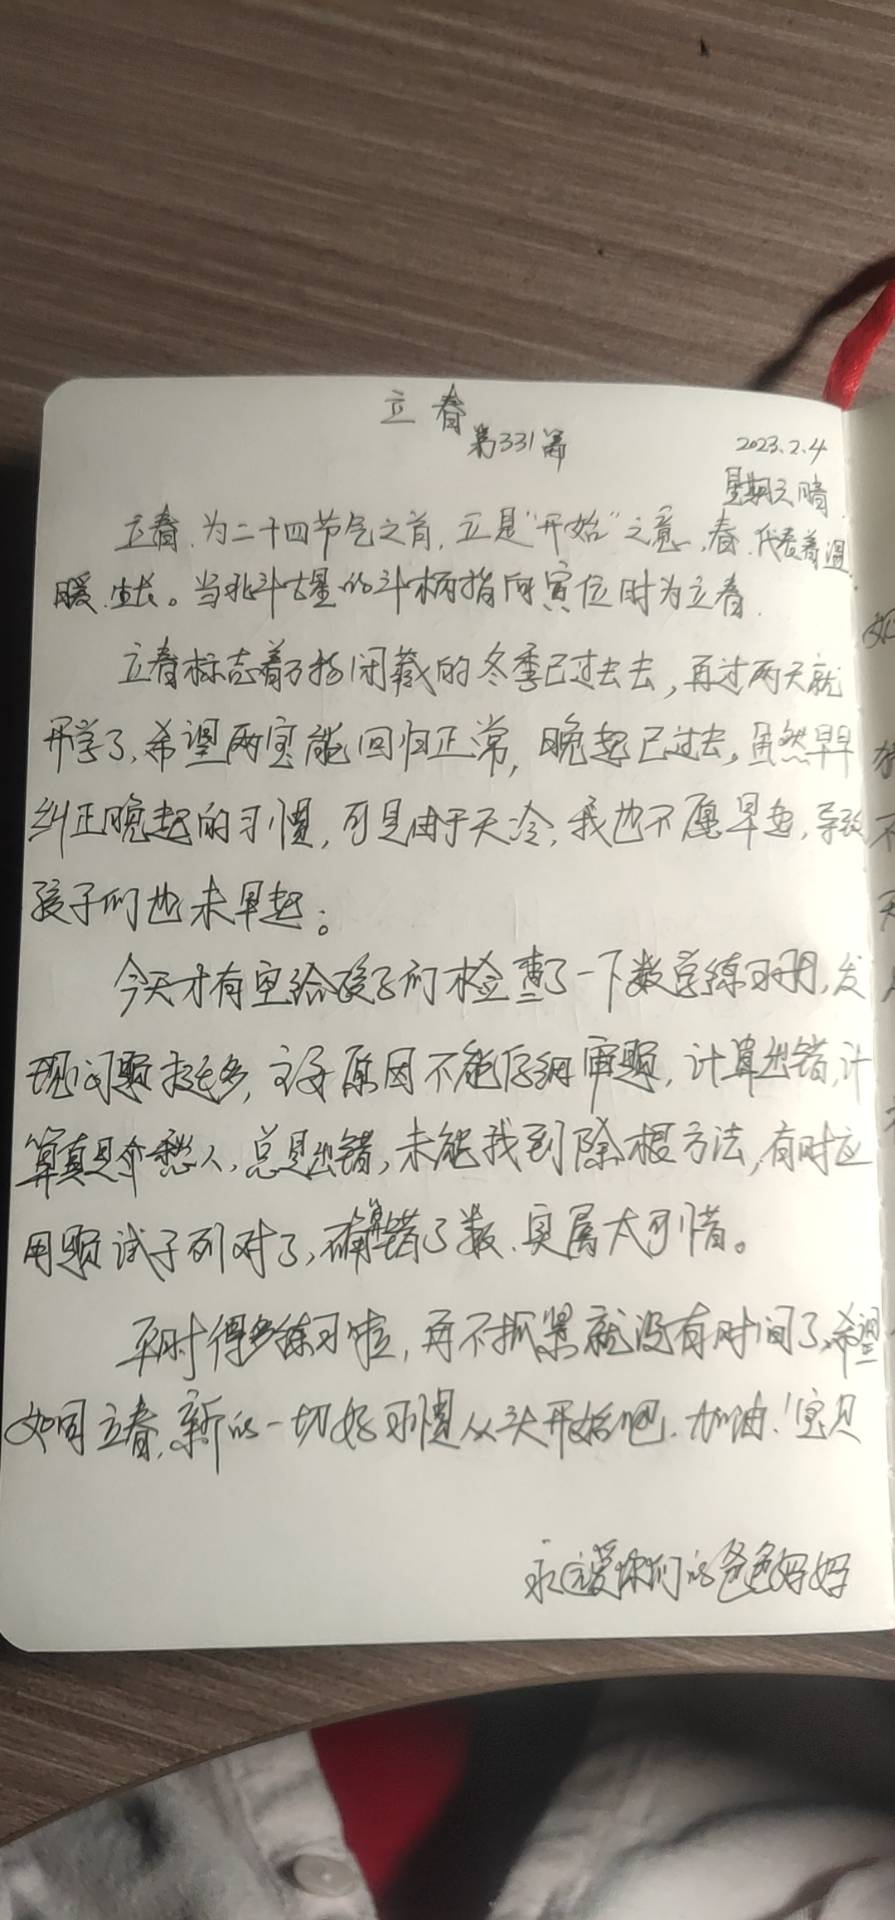 立春
第331篇
2023.2.4
星期六 晴
立春,为二十四节气之首,立是"开始"之意,春,代表着温
暖、生长。当北斗七星的斗柄指向寅位时为立春.
立春标志着万物闭藏的冬季已过去去,再过两天就
开学了,希望两宝能回归正常,晚起已过去,虽然早早
纠正晚起的习惯,可是由于天冷,我也不愿早起,导致
孩子们也未早起。
今天才有空给孩子们检查了一下数学练习册,发
现问题挺多,主要原因不能仔细审题,计算出错,计
算真是个愁人,总是出错,未能找到除根方法,有时应
用题试子列对了,确算错了数、实属太可惜。
平时得多练习啦,再不抓紧就没有时间了,希望
如同立春,新的一切好习惯从头开始吧.加油!宝贝
永远爱你们的爸爸妈妈